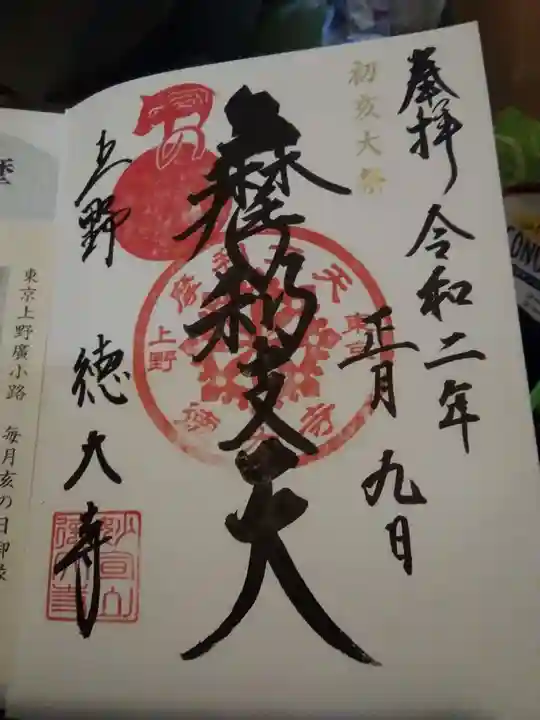 奉拝
令和二年
正月九日
初亥大祭
摩利支天
摩利支天
東京
上野
徳大寺
上野
徳大寺
妙宣山
東京上野廣小路
毎月亥の日御縁